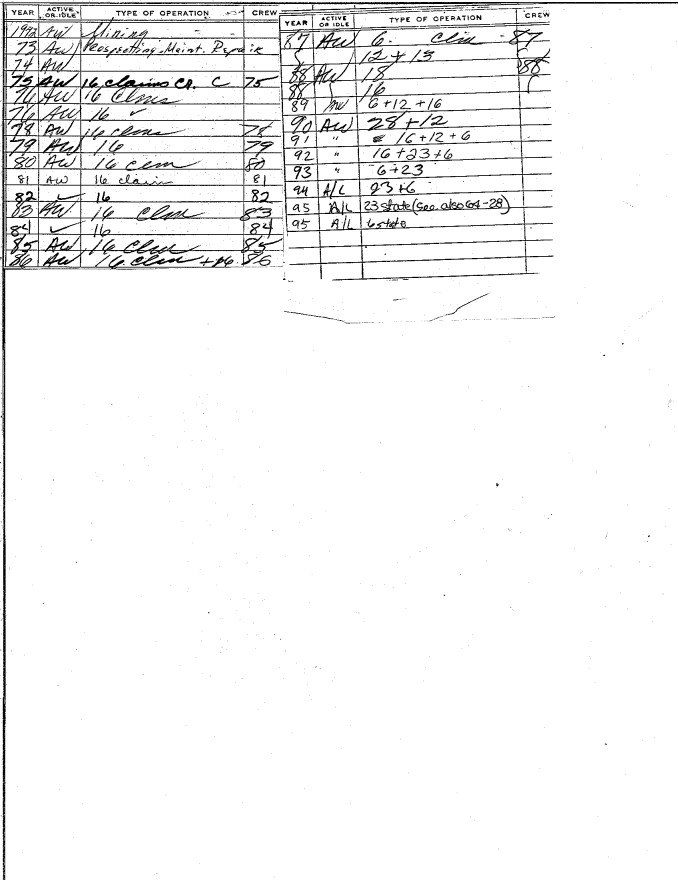 YEAR ACTIVE OR IDLE TYPE OF OPERATION CREW
1972 AW Mining
73 AW Prospecting-Maint. Repair
74 AW
75 AW 16 claims C 75
76 AW 16 Clms
76 AW 16 ✓
78 AW 16 clms 78
79 AW 16 79
80 AW 16 clm 80
81 AW 16 claim 81
82 ✓ 16 82
83 AW 16 Clm 83
84 ✓ 16 84
85 AW 16 Clm 85
86 AW 16 clm + 86
YEAR ACTIVE OR IDLE TYPE OF OPERATION CREW
87 AW 6. Clm 87
12 + 13
88 AW 18 88
88 16
89 6 + 12 + 16
90 AW 28 + 12
91 " 16 + 12 + 6
92 " 16 + 23 + 6
93 " 6 + 23
94 A/L 23 + 6
95 A/L 23 state (see also 64-28)
95 A/L 6 state